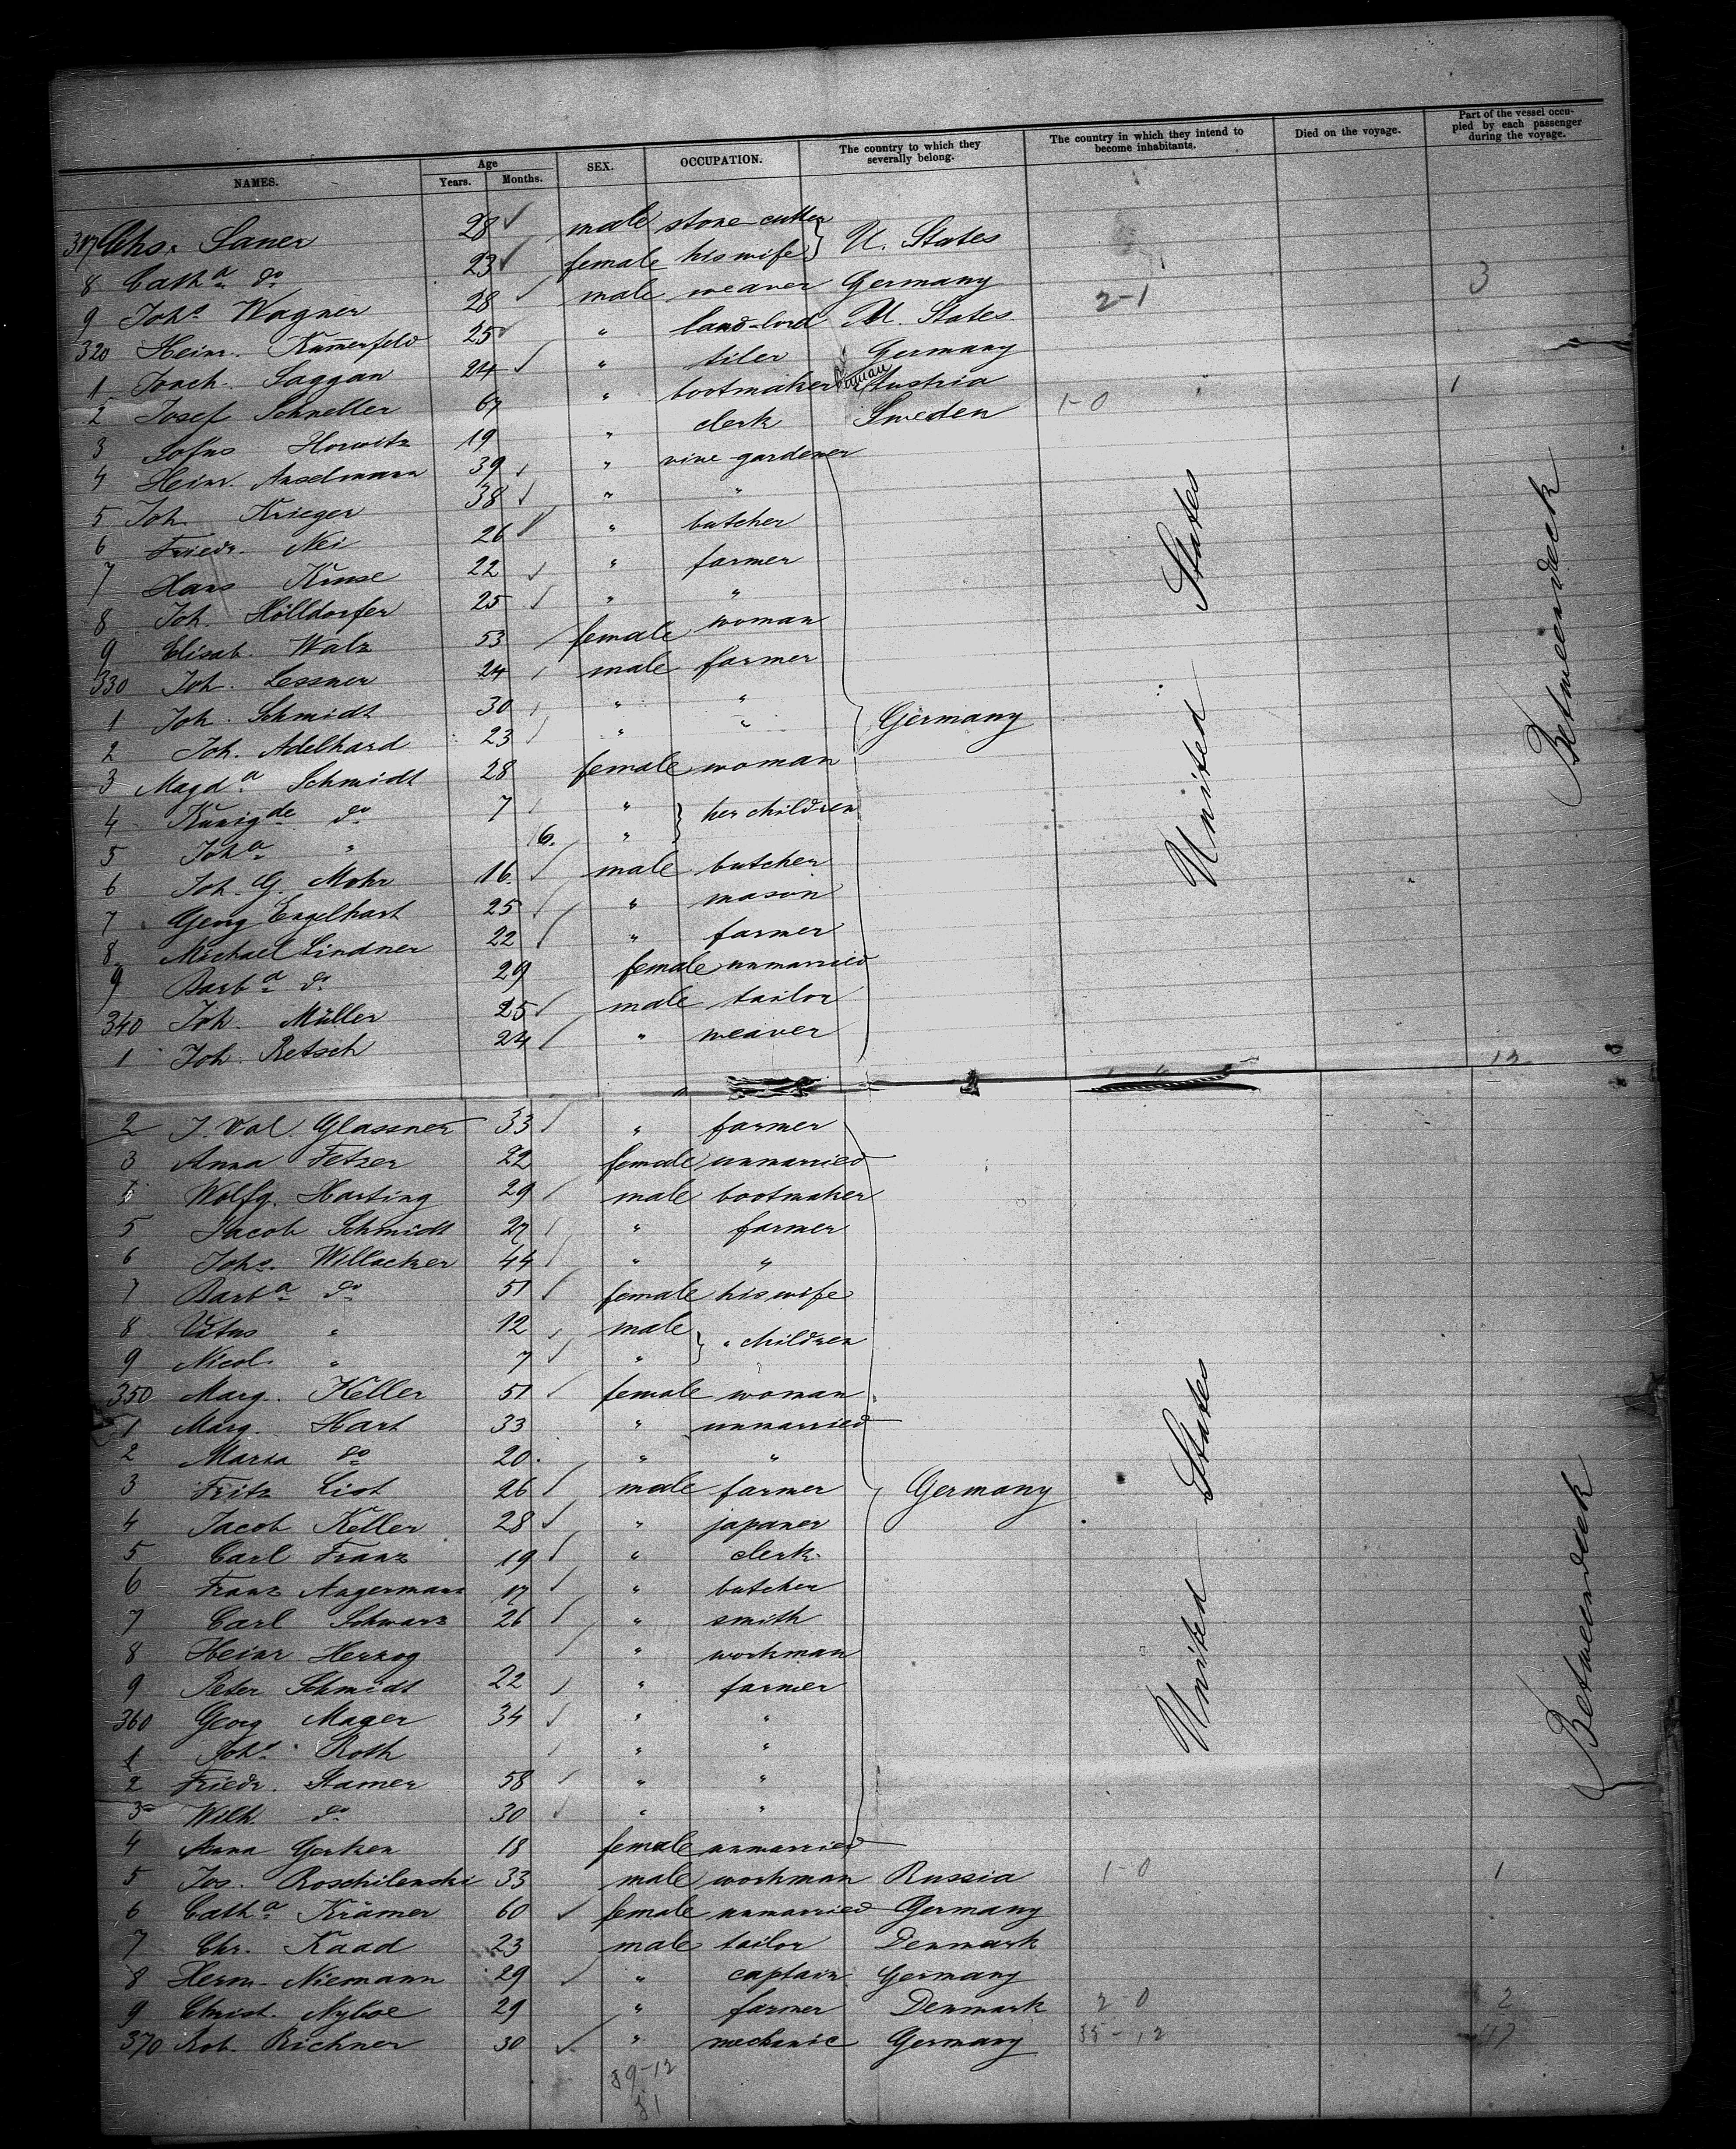 NAMES. Age Years. Months. SEX. OCCUPATION. The country to which they severally belong. The country in which they intend to become inhabitants. Died on the voyage. Part of the vessel occupied by each passenger during the voyage.
317 Chs. Saner 28 male stone-cutter } U. States
8 Cath.a do 23 female his wife
9 Johs Wagner 28 male weaver Germany 2-1 3
320 Heinr. Kum̄erfeld 25 " land-lord U. States
1 Joach. Saggan 24 " tiler Germany
2 Josef Schneller 67 " bootmaker Austria
3 Sofus Horwitz 19 " clerk Sweden 1-0 1
4 Heinr. Anselmann 39 " vine-gardener
5 Joh. Krieger 38 " "
6 Friedr. Nei 26 " butcher
7 Hans Kruse 22 " farmer
8 Joh. Hölldorfer 25 " "
9 Elisab. Walz 53 female woman
330 Joh. Lessner 24 male farmer
1 Joh. Schmidt 30 " "
2 Joh. Adelhard 23 " " Germany United States Betweendeck
3 Magd.a Schmidt 28 female woman
4 Kunig.de do 7 " } her children
5 Joh.a " 6. "
6 Joh. G. Mohr 16. male butcher
7 Georg Engelhart 25 " mason
8 Michael Lindner 22 " farmer
9 Barb.a do 29 female unmarried
340 Joh. Müller 25 male tailor
1 Joh. Retsch 24 " weaver
12
2 J. Val. Glassner 33 " farmer
3 Anna Fetzer 22 female unmarried
Wolfg. Harting 29 male bootmaker
5 Jacob Schmidt 27 " farmer
6 Johs. Willacker 44 " "
7 Barb.a do 51 female his wife
8 Vitus " 12 male } " children
9 Nicol. " 7 "
350 Marg. Keller 51 female woman
1 Marg. Hart 33 " unmarried
2 Maria do 20. " "
3 Fritz List 26 male farmer Germany United States Betweendeck
4 Jacob Keller 28 " japaner
5 Carl Franz 19 " clerk
6 Franz Angermann 17 " butcher
7 Carl Schwarz 26 " smith
8 Heinr Herzog " workman
9 Peter Schmidt 22 " farmer
360 Georg Mager 34 " "
1 Johs. Roth " "
2 Friedr. Stamer 58 " "
3 Wilh. do 30 " "
4 Anna Gerken 18 female unmarried
5 Jos. Roschilenski 33 male workman Russia 1-0 1
6 Cath.a Krämer 60 female unmarried Germany
7 Chr. Kaad 23 male tailor Denmark
8 Herm. Niemann 29 " captain Germany
9 Christ. Nyboe 29 " farmer Denmark 2-0 2
370 Rob. Richner 30 " mechanic Germany 35-12 47
39-12
51